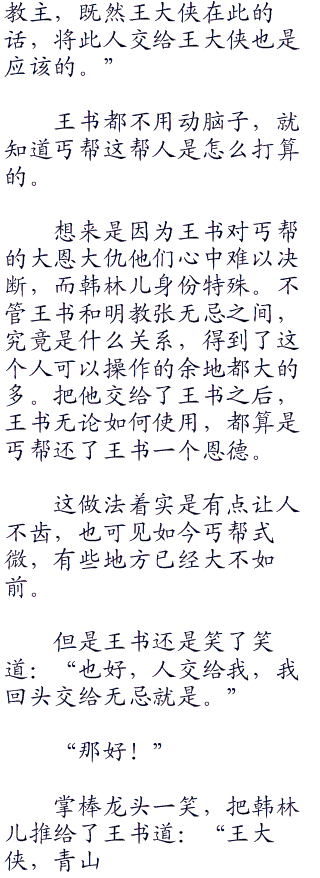 教主，既然王大侠在此的
话，将此人交给王大侠也是
应该的。”
王书都不用动脑子，就
知道丐帮这帮人是怎么打算
的。
想来是因为王书对丐帮
的大恩大仇他们心中难以决
断，而韩林儿身份特殊。不
管王书和明教张无忌之间，
究竟是什么关系，得到了这
个人可以操作的余地都大的
多。把他交给了王书之后，
王书无论如何使用，都算是
丐帮还了王书一个恩德。
这做法着实是有点让人
不齿，也可见如今丐帮式
微，有些地方已经大不如
前。
但是王书还是笑了笑
道：“也好，人交给我，我
回头交给无忌就是。”
“那好！”
掌棒龙头一笑，把韩林
儿推给了王书道：“王大
侠，青山